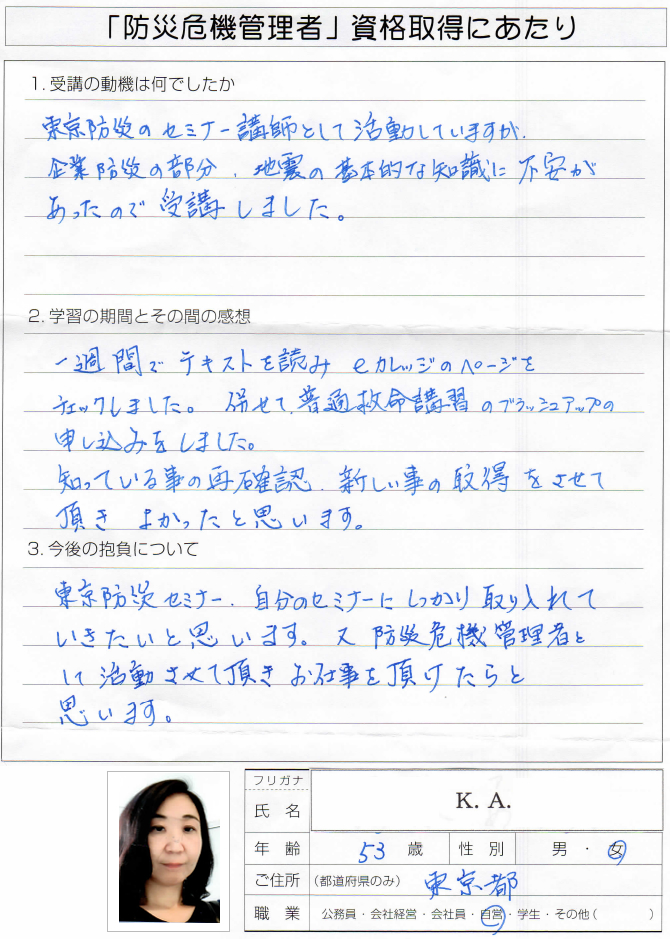 「防災危機管理者」資格取得にあたり
1. 受講の動機は何でしたか
東京防災のセミナー講師として活動していますが、
企業防災の部分、地震の基本的な知識に不安が
あったので受講しました。
2. 学習の期間とその間の感想
一週間でテキストを読みeカレッジのページを
チェックしました。併せて、普通救命講習のブラッシュアップの
申し込みをしました。
知っている事の再確認、新しい事の取得をさせて
頂きよかったと思います。
3. 今後の抱負について
東京防災セミナー、自分のセミナーにしっかり取り入れて
いきたいと思います。又防災危機管理者と
して活動させて頂きお仕事を頂けたらと
思います。
フリガナ
氏 名 K. A.
年 齢 53 歳 性 別 男 ・ 女
ご住所 (都道府県のみ) 東京都
職 業 公務員・会社経営・会社員・自営・学生・その他( )